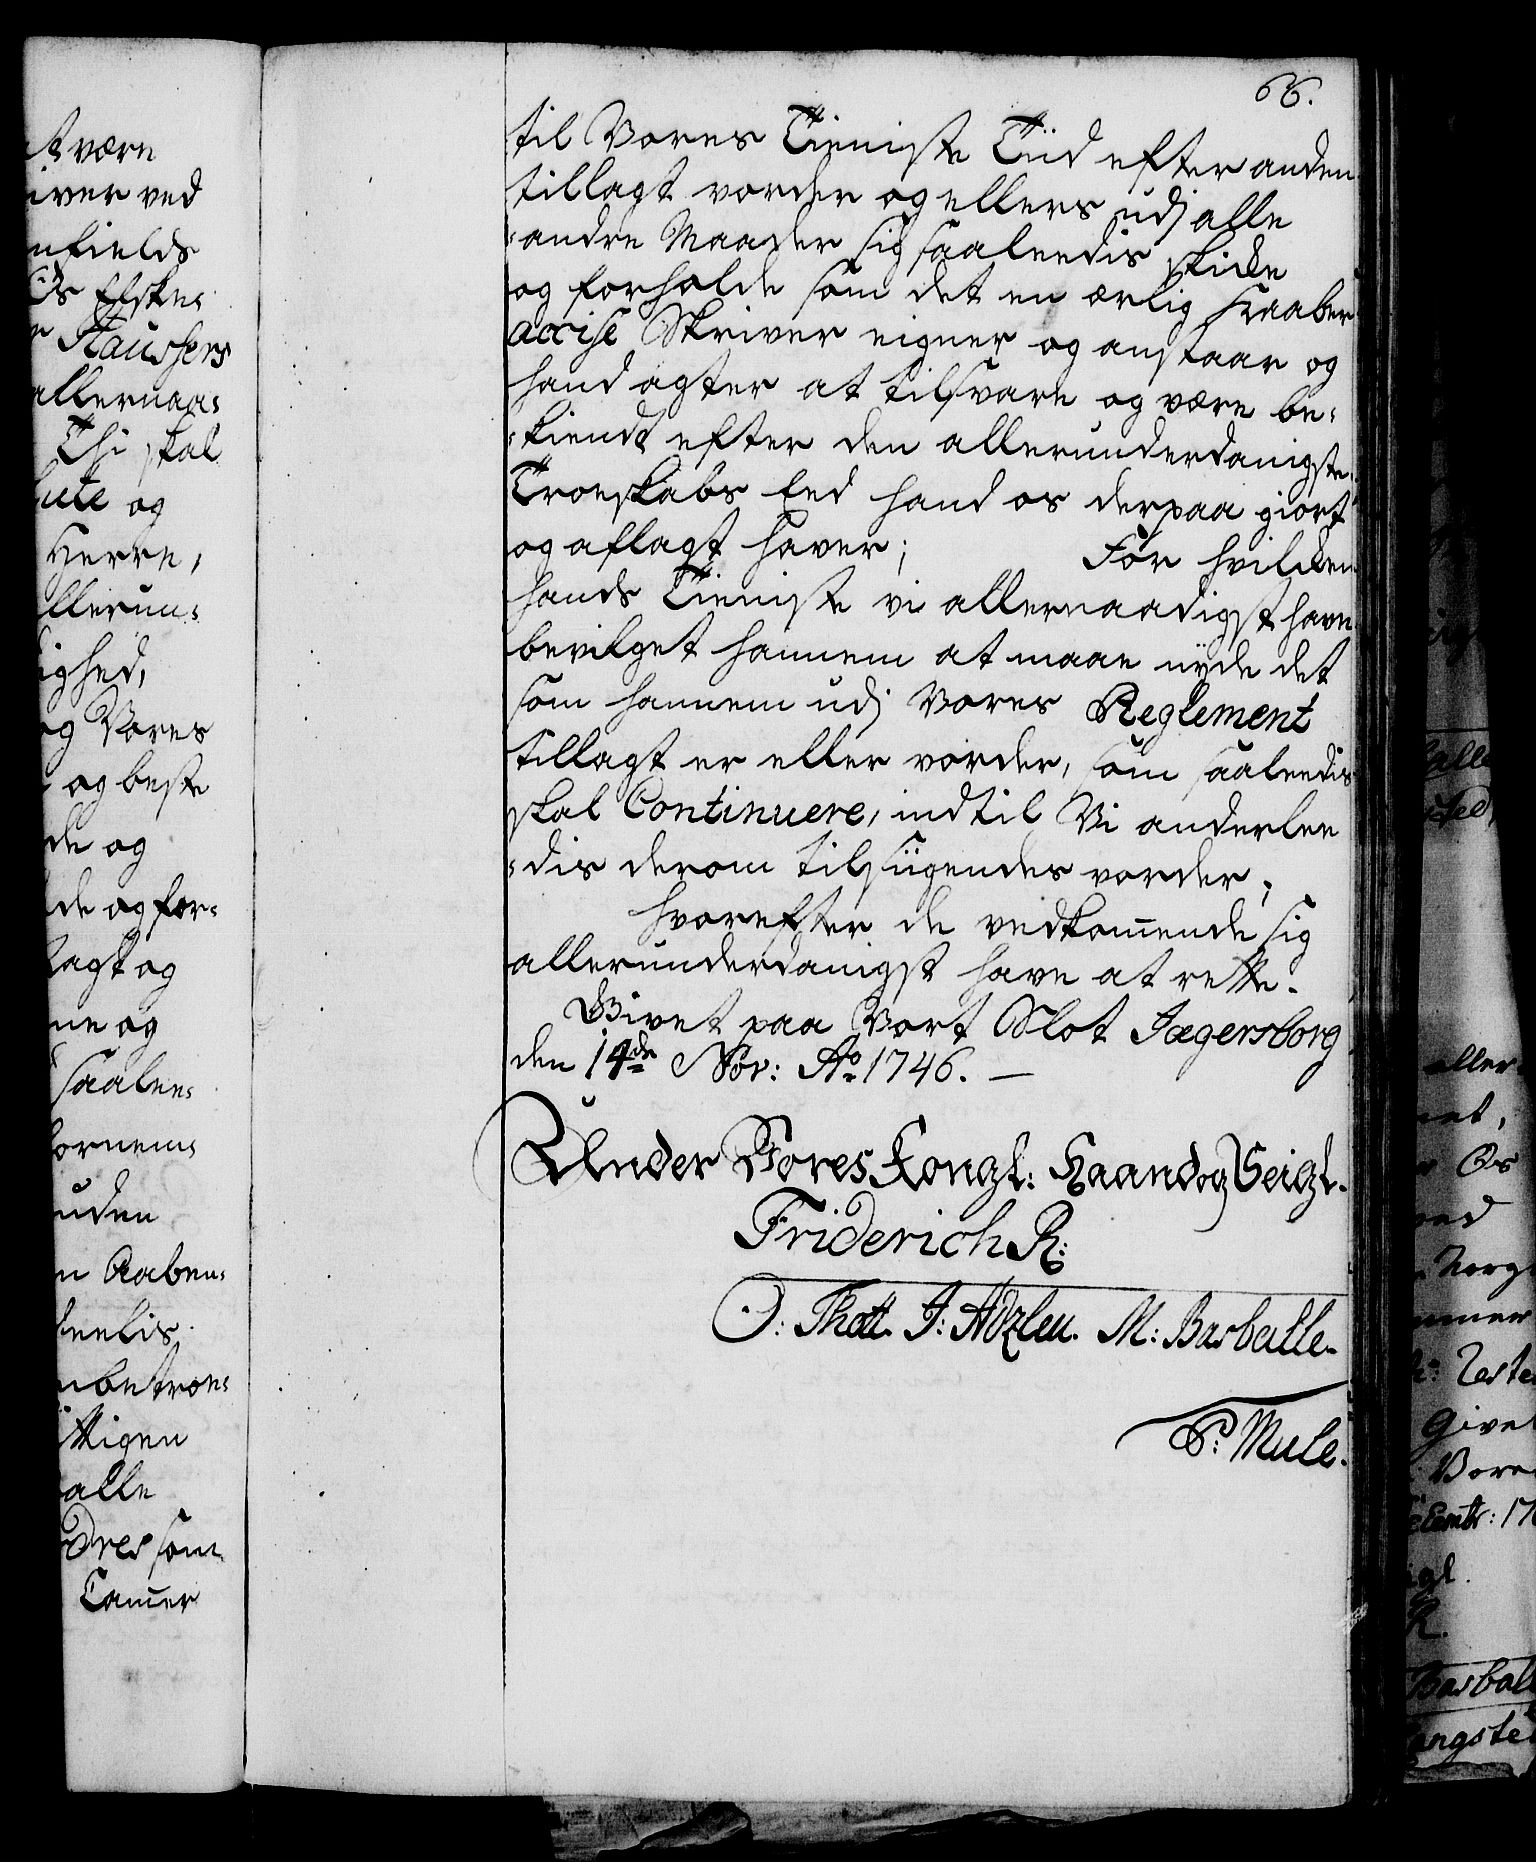 66.
til Vores Tieniste Tiid efter anden
tillagt vorder og ellers udj alle
andre Maader sig saaleedis skicke
og forholde som det en ærlig Kaaber
accise Skriver eigner og anstaar og
hand agter at tilsvare og være be¸
¸kiendt efter den allerunderdanigste
Troeskabs Eed hand os derpaa giort
og aflagt haver; For hvilcken
hands Tieniste vi allernaadigst have
bevilget hannem at maae nyde det
som hannem udj Vores Reglement
tillagt er eller vorder, som saaleedis
skal Continuere, indtil Vi anderlee
¸dis derom tilsiigendes vorder;
hvorefter de vedkommende sig
allerunderdanigst have at rette.
Givet paa Vort Slot Jægersborg
den 14de Nov: Ao 1746. —
Under Vores Kongl: Haand og Seigl.
Friderich R:
O: Thott. J: Adzleu. M: Basballe.
P: Mule.
t være
iver ved
nfields
Eske¸
Haushers
allernaa¸
Thi skal
og
Herre,
llerun¸
ighed,
og Vores
og beste
de og
de og for¸
lagt og
ne og
saalee¸
fornem¸
uden
n Aaben¸
deelis
nbetroe¸
ttigen
alle
dres som
Camer